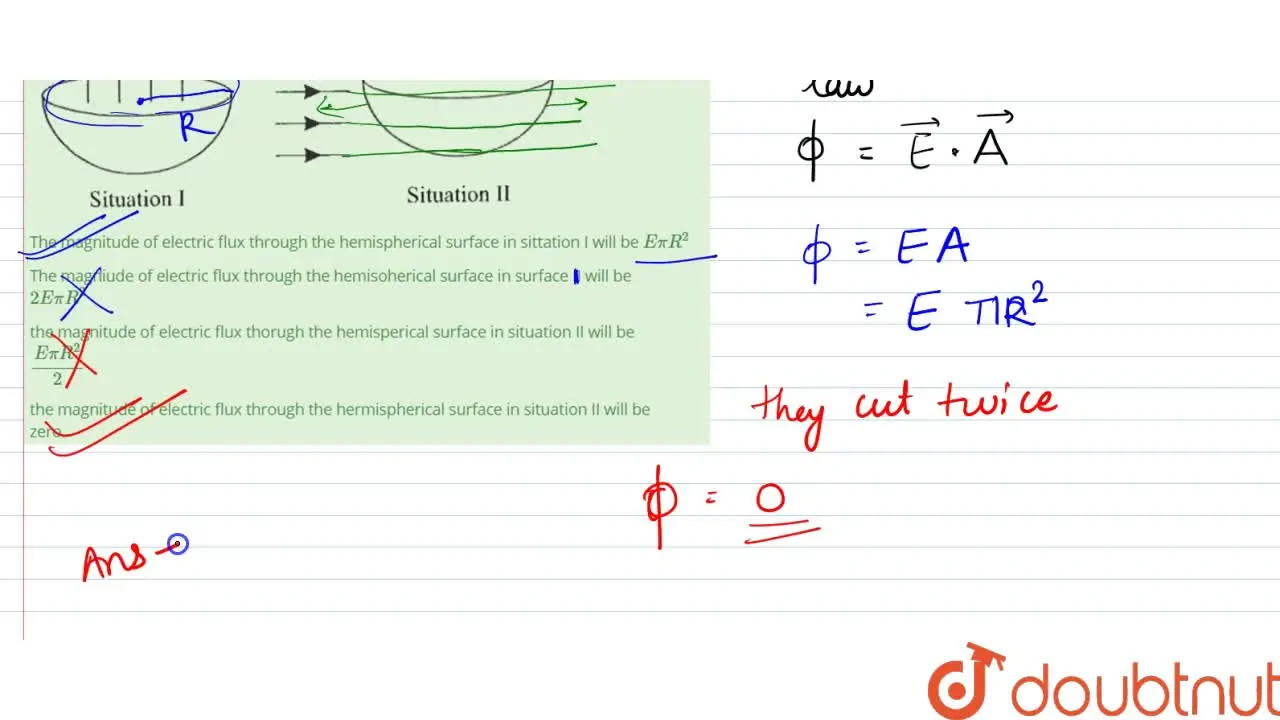 law
R
ϕ = E⃗ · A⃗
Situation I
Situation II
The magnitude of electric flux through the hemispherical surface in sittation I will be EπR²
ϕ = EA
The magniude of electric flux through the hemisoherical surface in surface I will be
2EπR
= E πR²
the magnitude of electric flux thorugh the hemisperical surface in situation II will be
EπR²
2
they cut twice
the magnitude of electric flux through the hermispherical surface in situation II will be
zero
ϕ = 0
Ans -
doubtnut